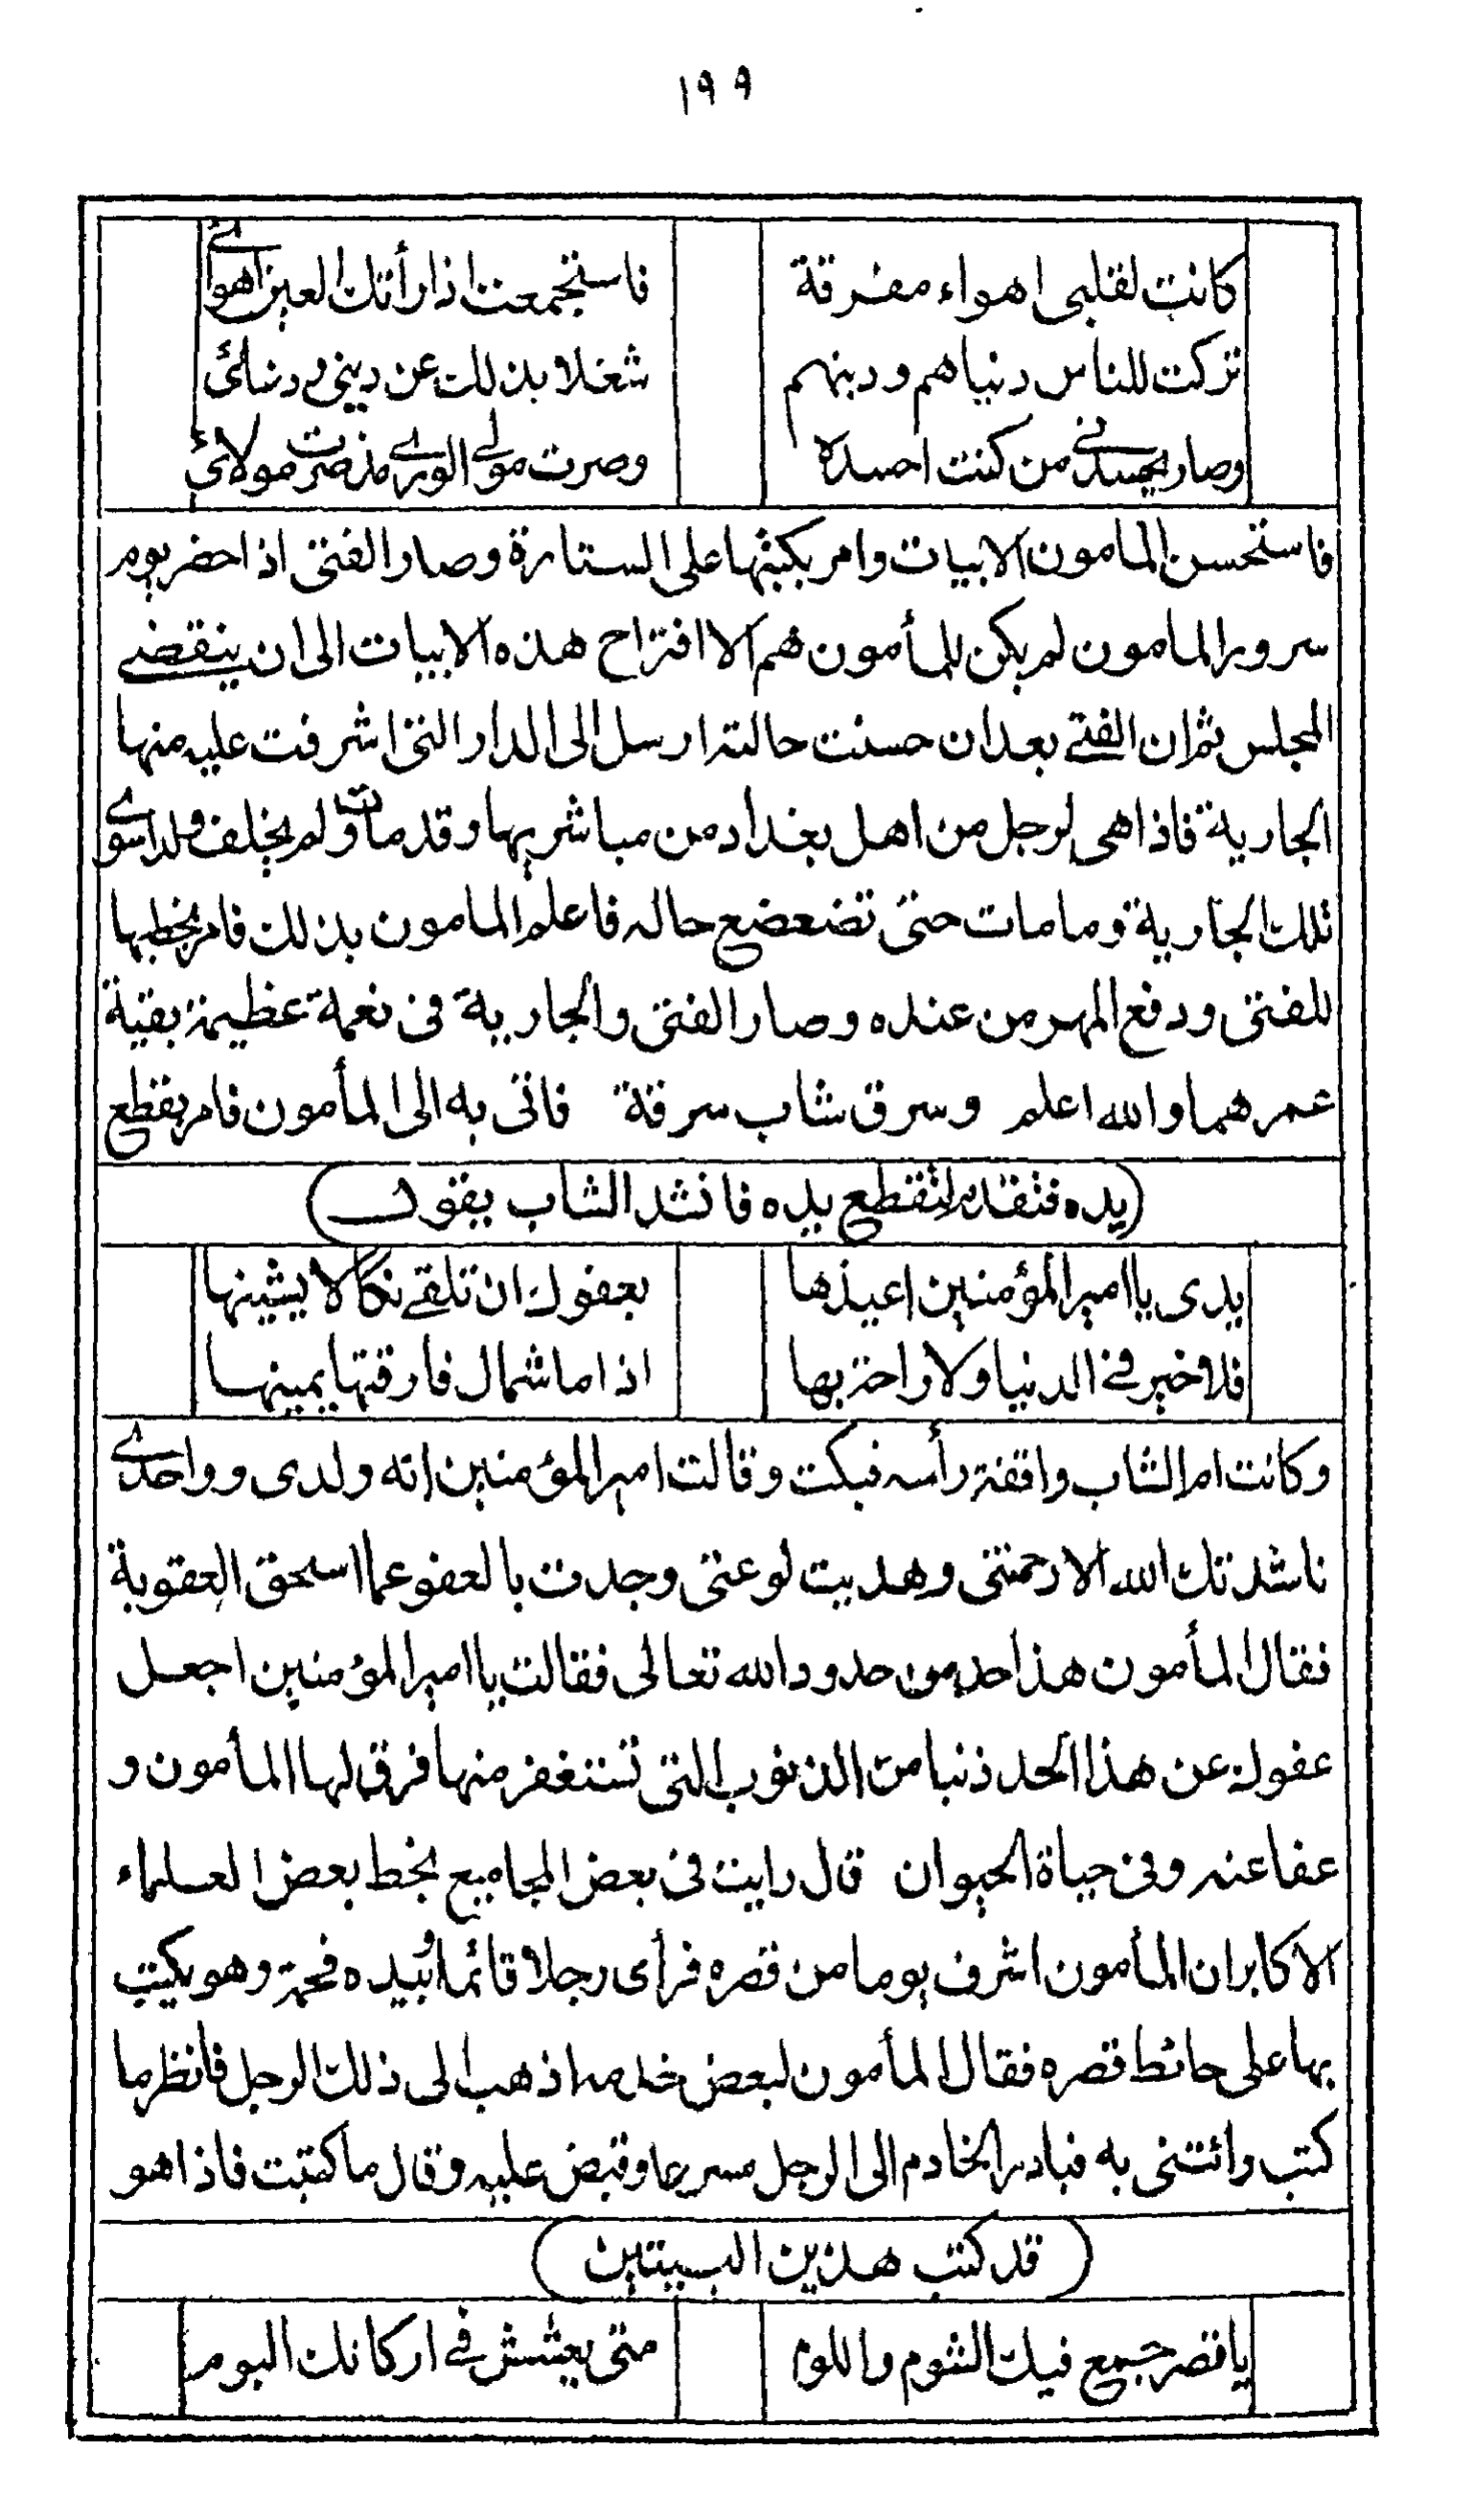 ١٩٩
كانت لقلبى اهواء مفرقة فاستجمعت اذ رأتك العين اهوائى
تركت للناس دنياهم ودينهم شغلا بذلك عن دينى ودنيائى
وصار يحسدنى من كنت احسده وصرت مولى الورى مذ صرت مولائى
فاستحسن المامون الابيات وامر بكتبها على الستارة وصار الفتى اذا حضر يوم
سرور المامون لم يكن للمأمون هم الا اقتراح هذه الابيات الى ان ينقضے
المجلس ثم ان الفتے بعد ان حسنت حالته ارسل الى الدار التى اشرفت عليه منها
الجارية فاذا هى لرجل من اهل بغداد من مباشريها وقد مات ولم يخلف ولدا سوى
تلك الجارية وما مات حتى تضعضع حاله فاعلم المامون بذلك فامر بخطبها
للفتى ودفع المهر من عنده وصار الفتى والجارية فى نعمة عظيمة بقية
عمرهما والله اعلم وسرق شاب سرقة فاتى به الى المأمون فامر بقطع
(يده فتقدم لتقطع يده فانشد الشاب يقول)
يدى يا امير المؤمنين اعيذها بعفوك ان تلقے نكالا يشينها
فلا خير فے الدنيا ولا راحة بها اذا ما شمال فارقتها يمينها
وكانت ام الشاب واقفة رأسه فبكت وقالت امير المؤمنين انه ولدى وواحدى
ناشدتك الله الا رحمتنى وهديت لوعتى وجدت بالعفو عما اسحق العقوبة
فقال المأمون هذا حد من حدود الله تعالى فقالت يا امير المؤمنين اجعل
عفوك عن هذا الحد ذنبا من الذنوب التى تستغفر منها فرق لها المأمون و
عفا عنه وفى حياة الحيوان قال رايت فى بعض المجاميع بخط بعض العلماء
الاكابر ان المأمون اشرف يوما من قصره فرأى رجلا قائما بيده فحمة وهو يكتب
بها على حائط قصره فقال المأمون لبعض خدمه اذهب الى ذلك الرجل فانظر ما
كتب وائتنى به فبادر الخادم الى الرجل مسرعا وقبض عليه وقال ما كتبت فاذا هو
(قد كتب هذين البيتين)
يا قصر جمع فيك الشوم واللوم متى يعشش فے اركانك البوم